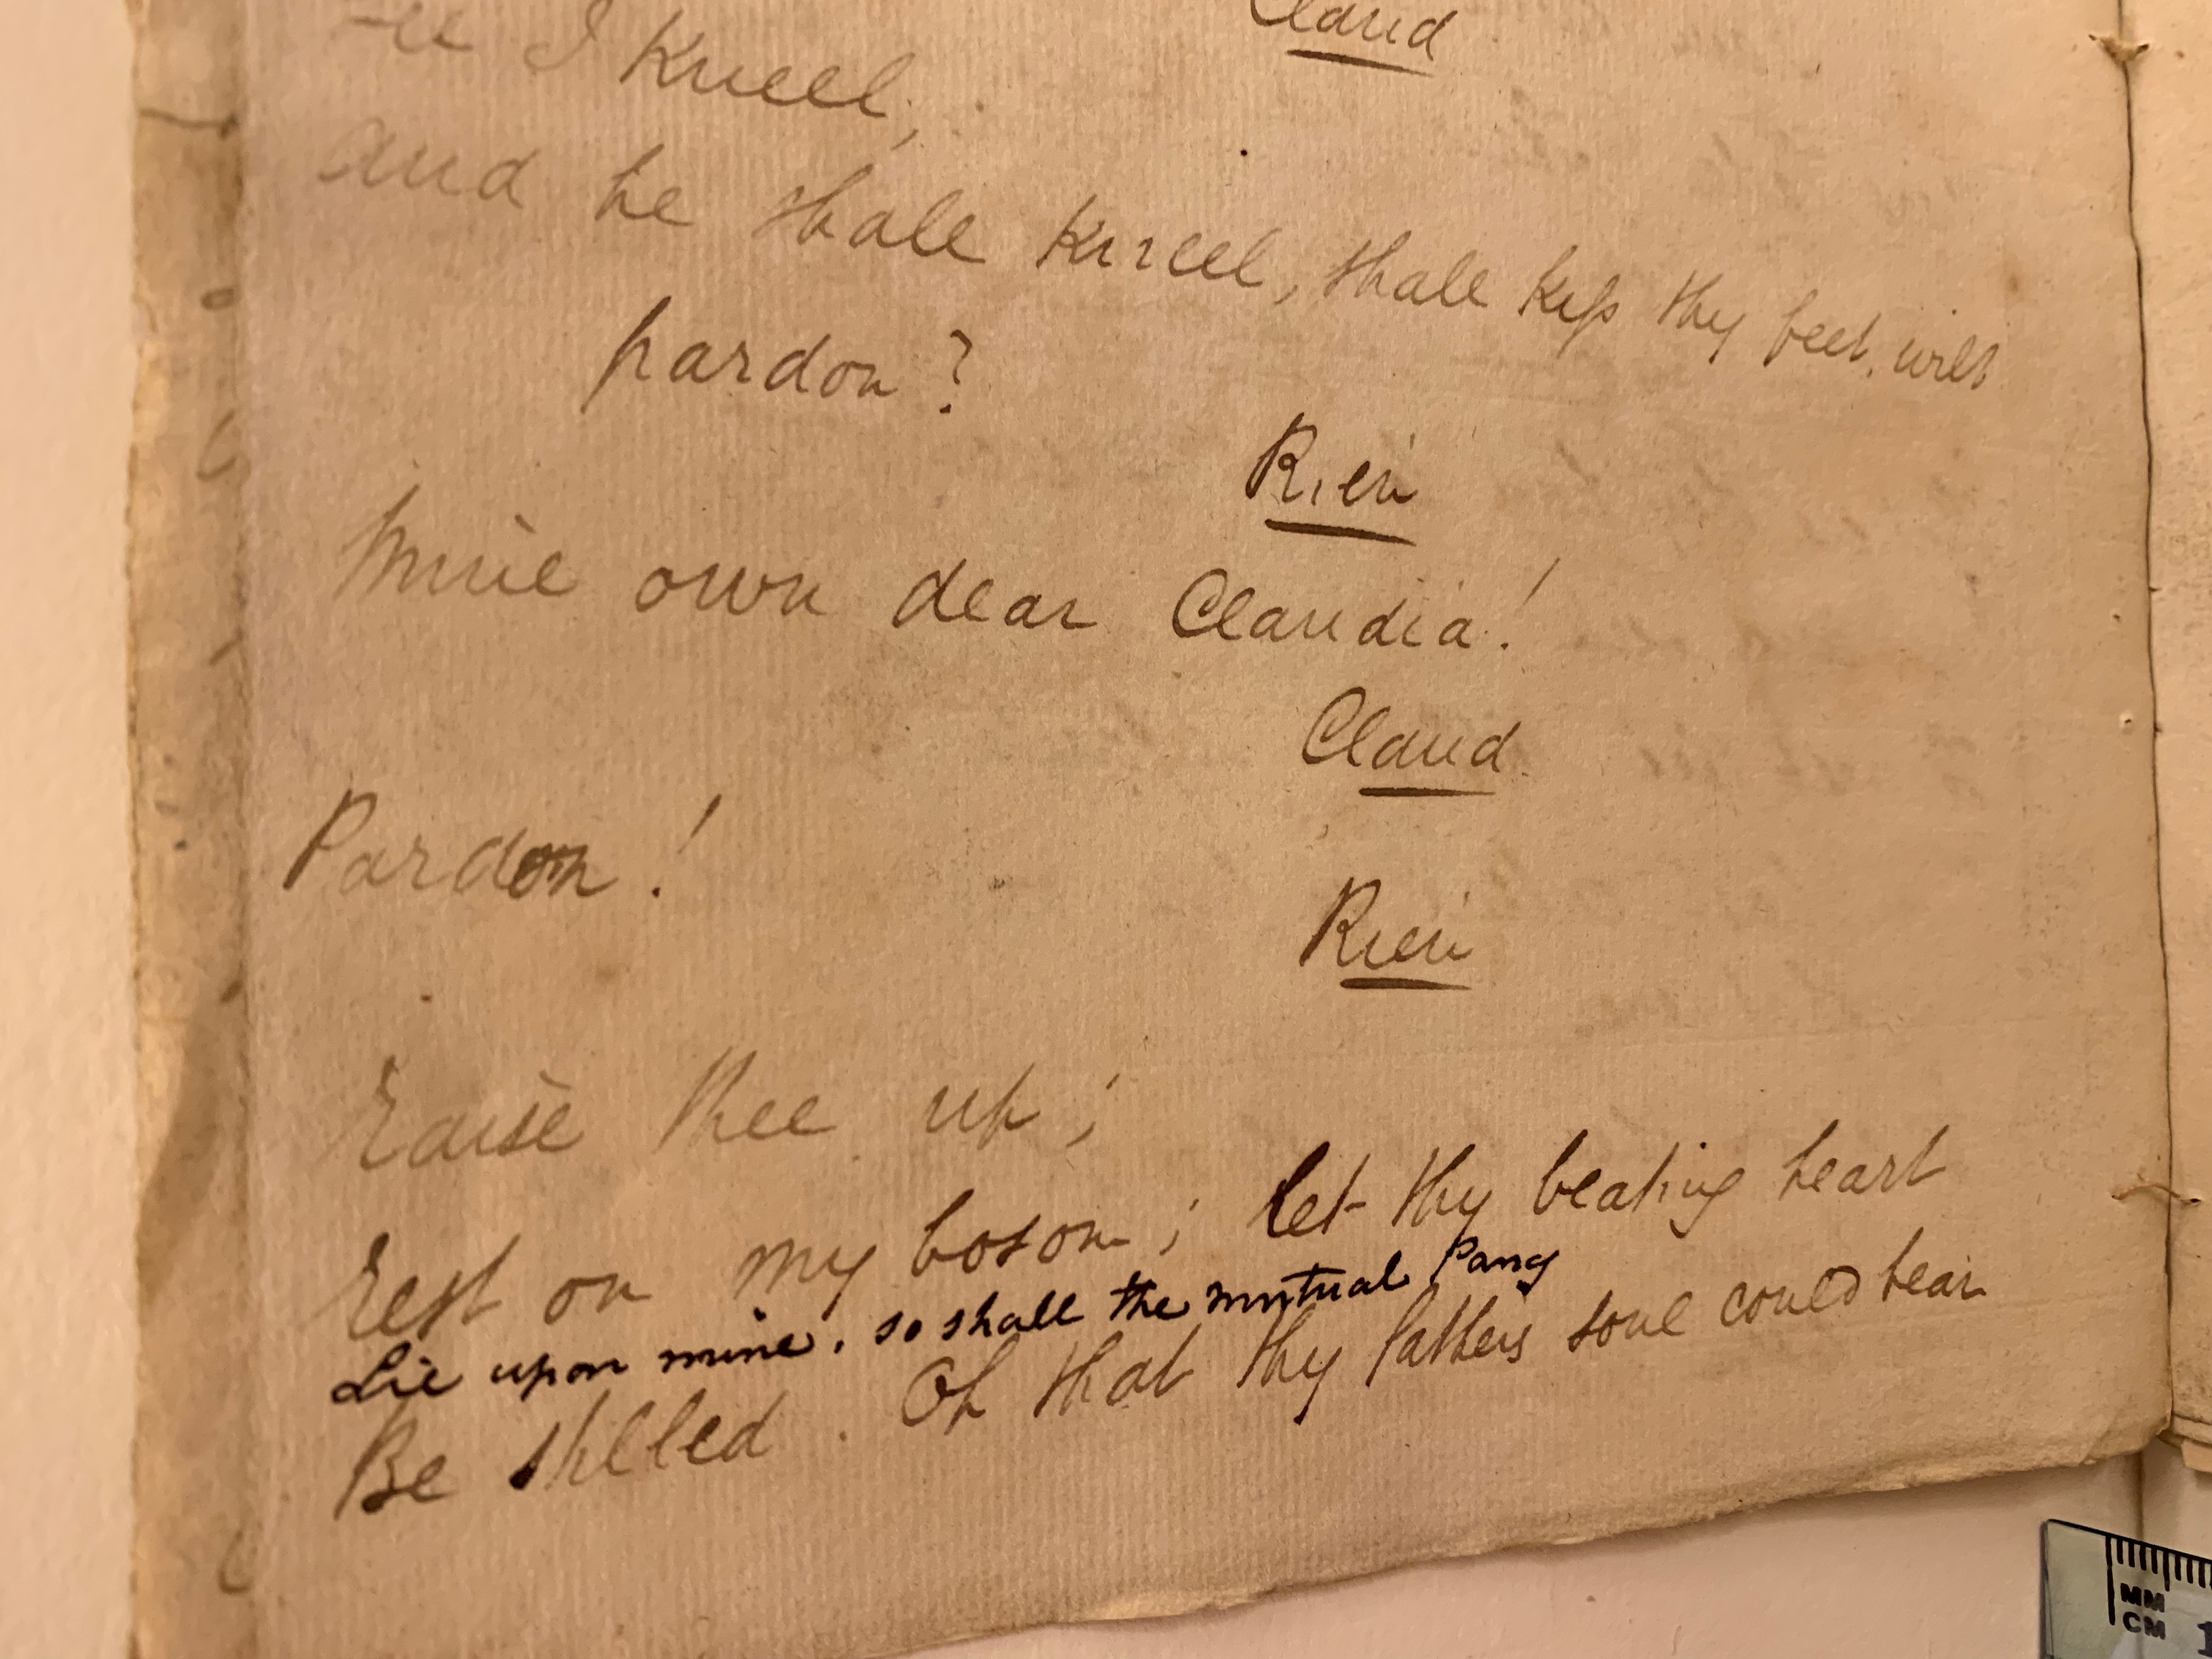 Claud
I kneel,
And he shall kneel, shall kiss thy feet, wilt
pardon?
Rieri
Mine own dear Claudia!
Claud.
Pardon!
Rieri
Raise thee up;
Rest on my bosom; let thy beating heart
Lie upon mine, so shall the mutual Pang
Be stilled. Oh that thy fathers soul could bear
MM
CM 1